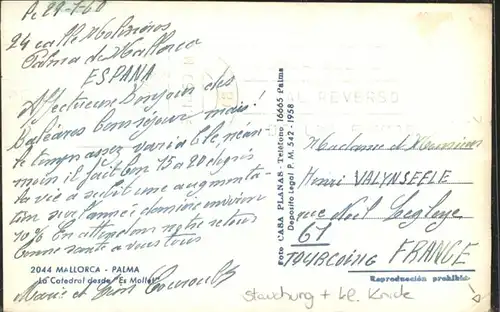 24 calle Molineros
Palma de Mallorca
ESPANA
Affectueux Bonjour des
Baléares bon séjour mais !
le temps assez variable, néan
moin il fait bon 15 a 20 degrés
la vie a subit une augmenta-
tion sur l'année dernière environ
10% En attendant notre retour
bonne santé a vous tous
Marie et
2044 MALLORCA - PALMA
La Catedral desde "Es Mollet"
Foto CASA PLANAS - Teléfono 16665 Palma
Depósito Legal P. M. 542 - 1958
REVERSO
Madame et Monsieur
Henri VALYNSEELE
rue Noël Leglaye
61
TOURCOING FRANCE
Reproducción prohibida
Stauchung + kl. Knicke